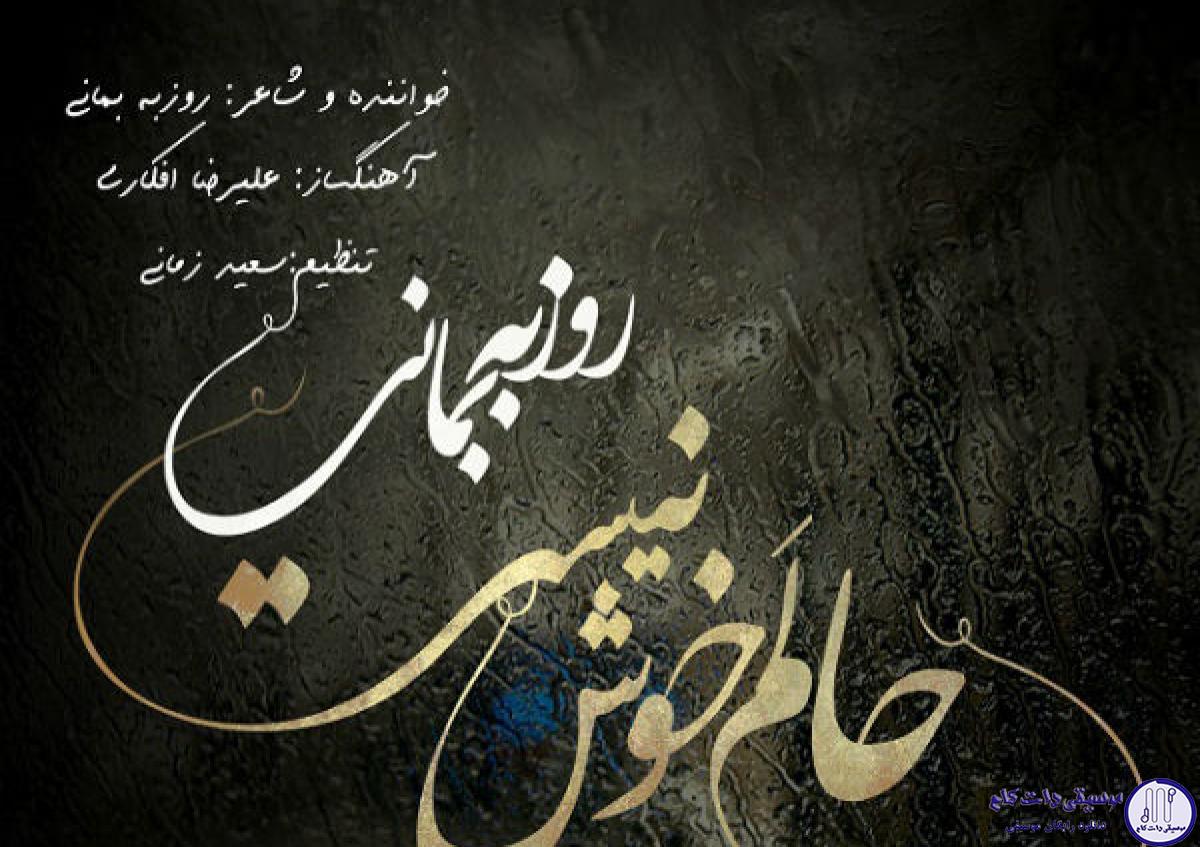 خواننده و شاعر: روزبه بمانی
آهنگساز: علیرضا افکاری
تنظیم: سعید زمانی
روزبه بمانی
حالم خوش نیست
موسیقی دات کام
دانلود رایگان موسیقی
موسیقی دات کام